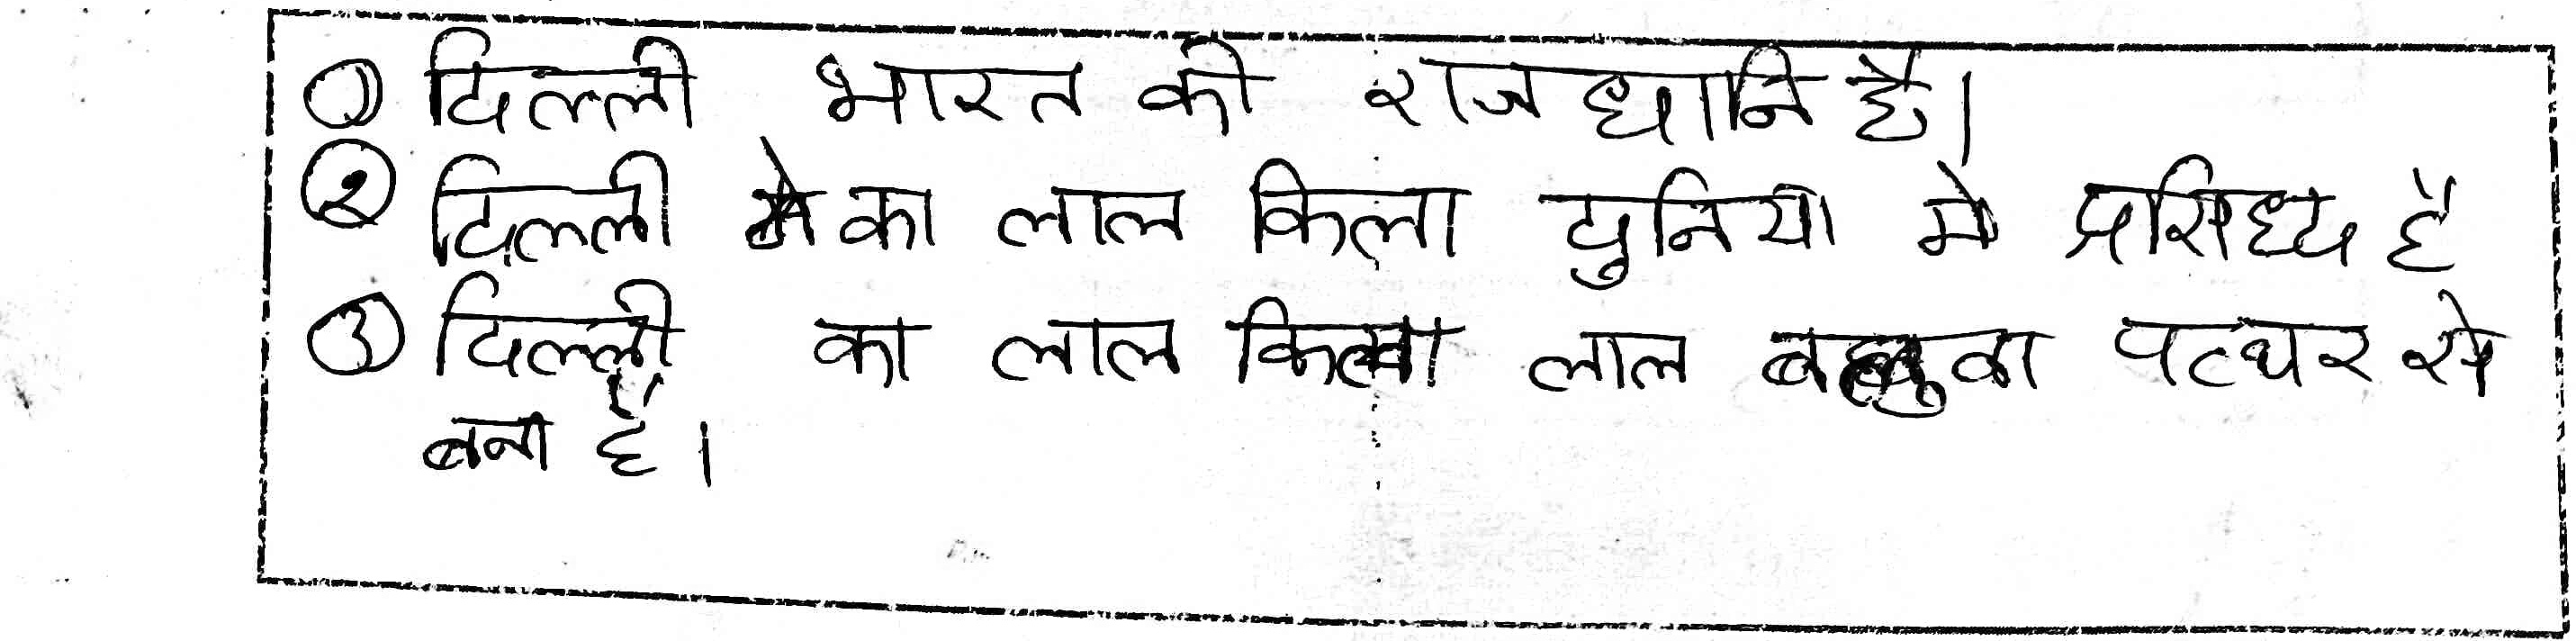 ① दिल्ली भारत की राजधानि है।
② दिल्ली का लाल किला दुनिया मे प्रसिध्द है
③ दिल्ली का लाल किला लाल पत्थर से
बना है।